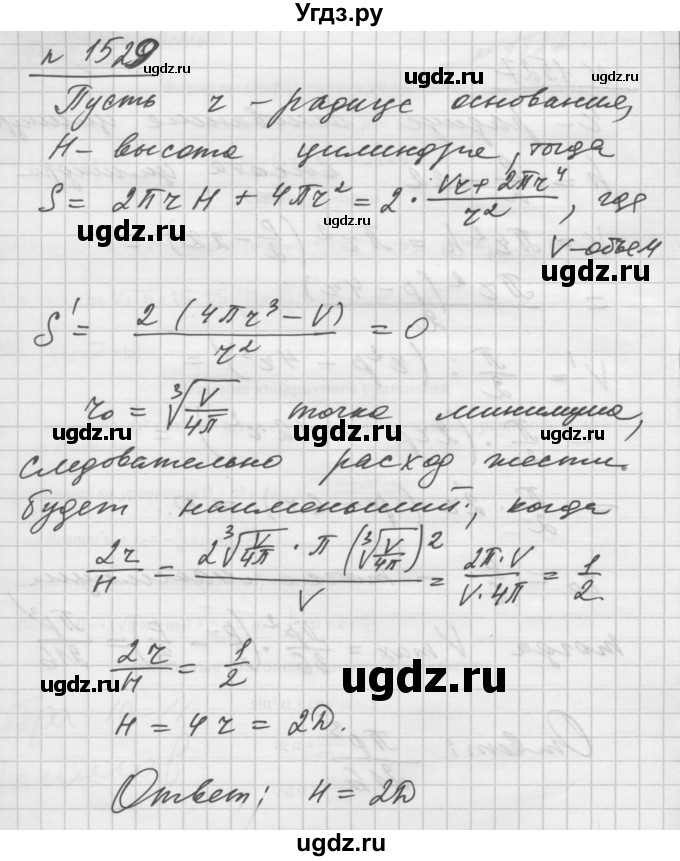 Угдз.ру
n 1529
ugdz.ru
ugdz.ru
Пусть r - радиус основания,
H - высота цилиндра, тогда
S = 2πrH + 4πr² = 2 · (Vr + 2πr⁴)/r², где
V - объем
ugdz.ru
ugdz.ru
S' = 2(4πr³ - V)/r² = 0
ugdz.ru
r₀ = ∛(V/4π) точка минимума,
ugdz.ru
ugdz.ru
следовательно расход жести
будет наименьший, когда
ugdz.ru
2r/H = (2∛(V/4π) · π(∛(V/4π))²)/V = (2π·V)/(V·4π) = 1/2
ugdz.ru
2r/H = 1/2
ugdz.ru
ugdz.ru
H = 4r = 2D.
Ответ: H = 2D
ugdz.ru
ugdz.ru
ugdz.ru